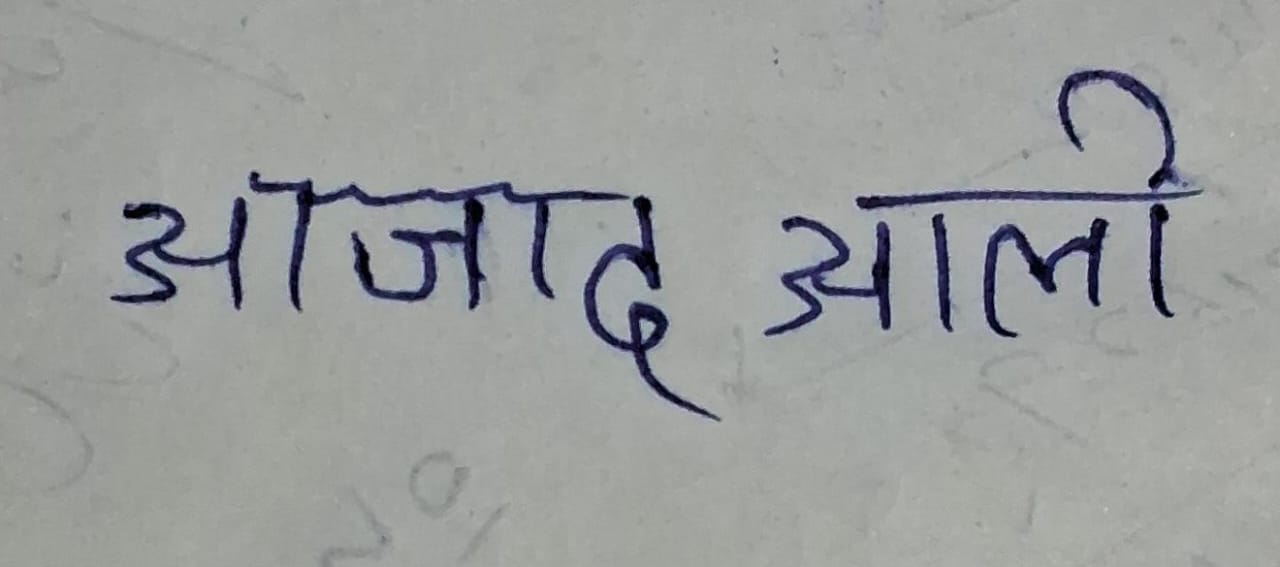 आजाद आली